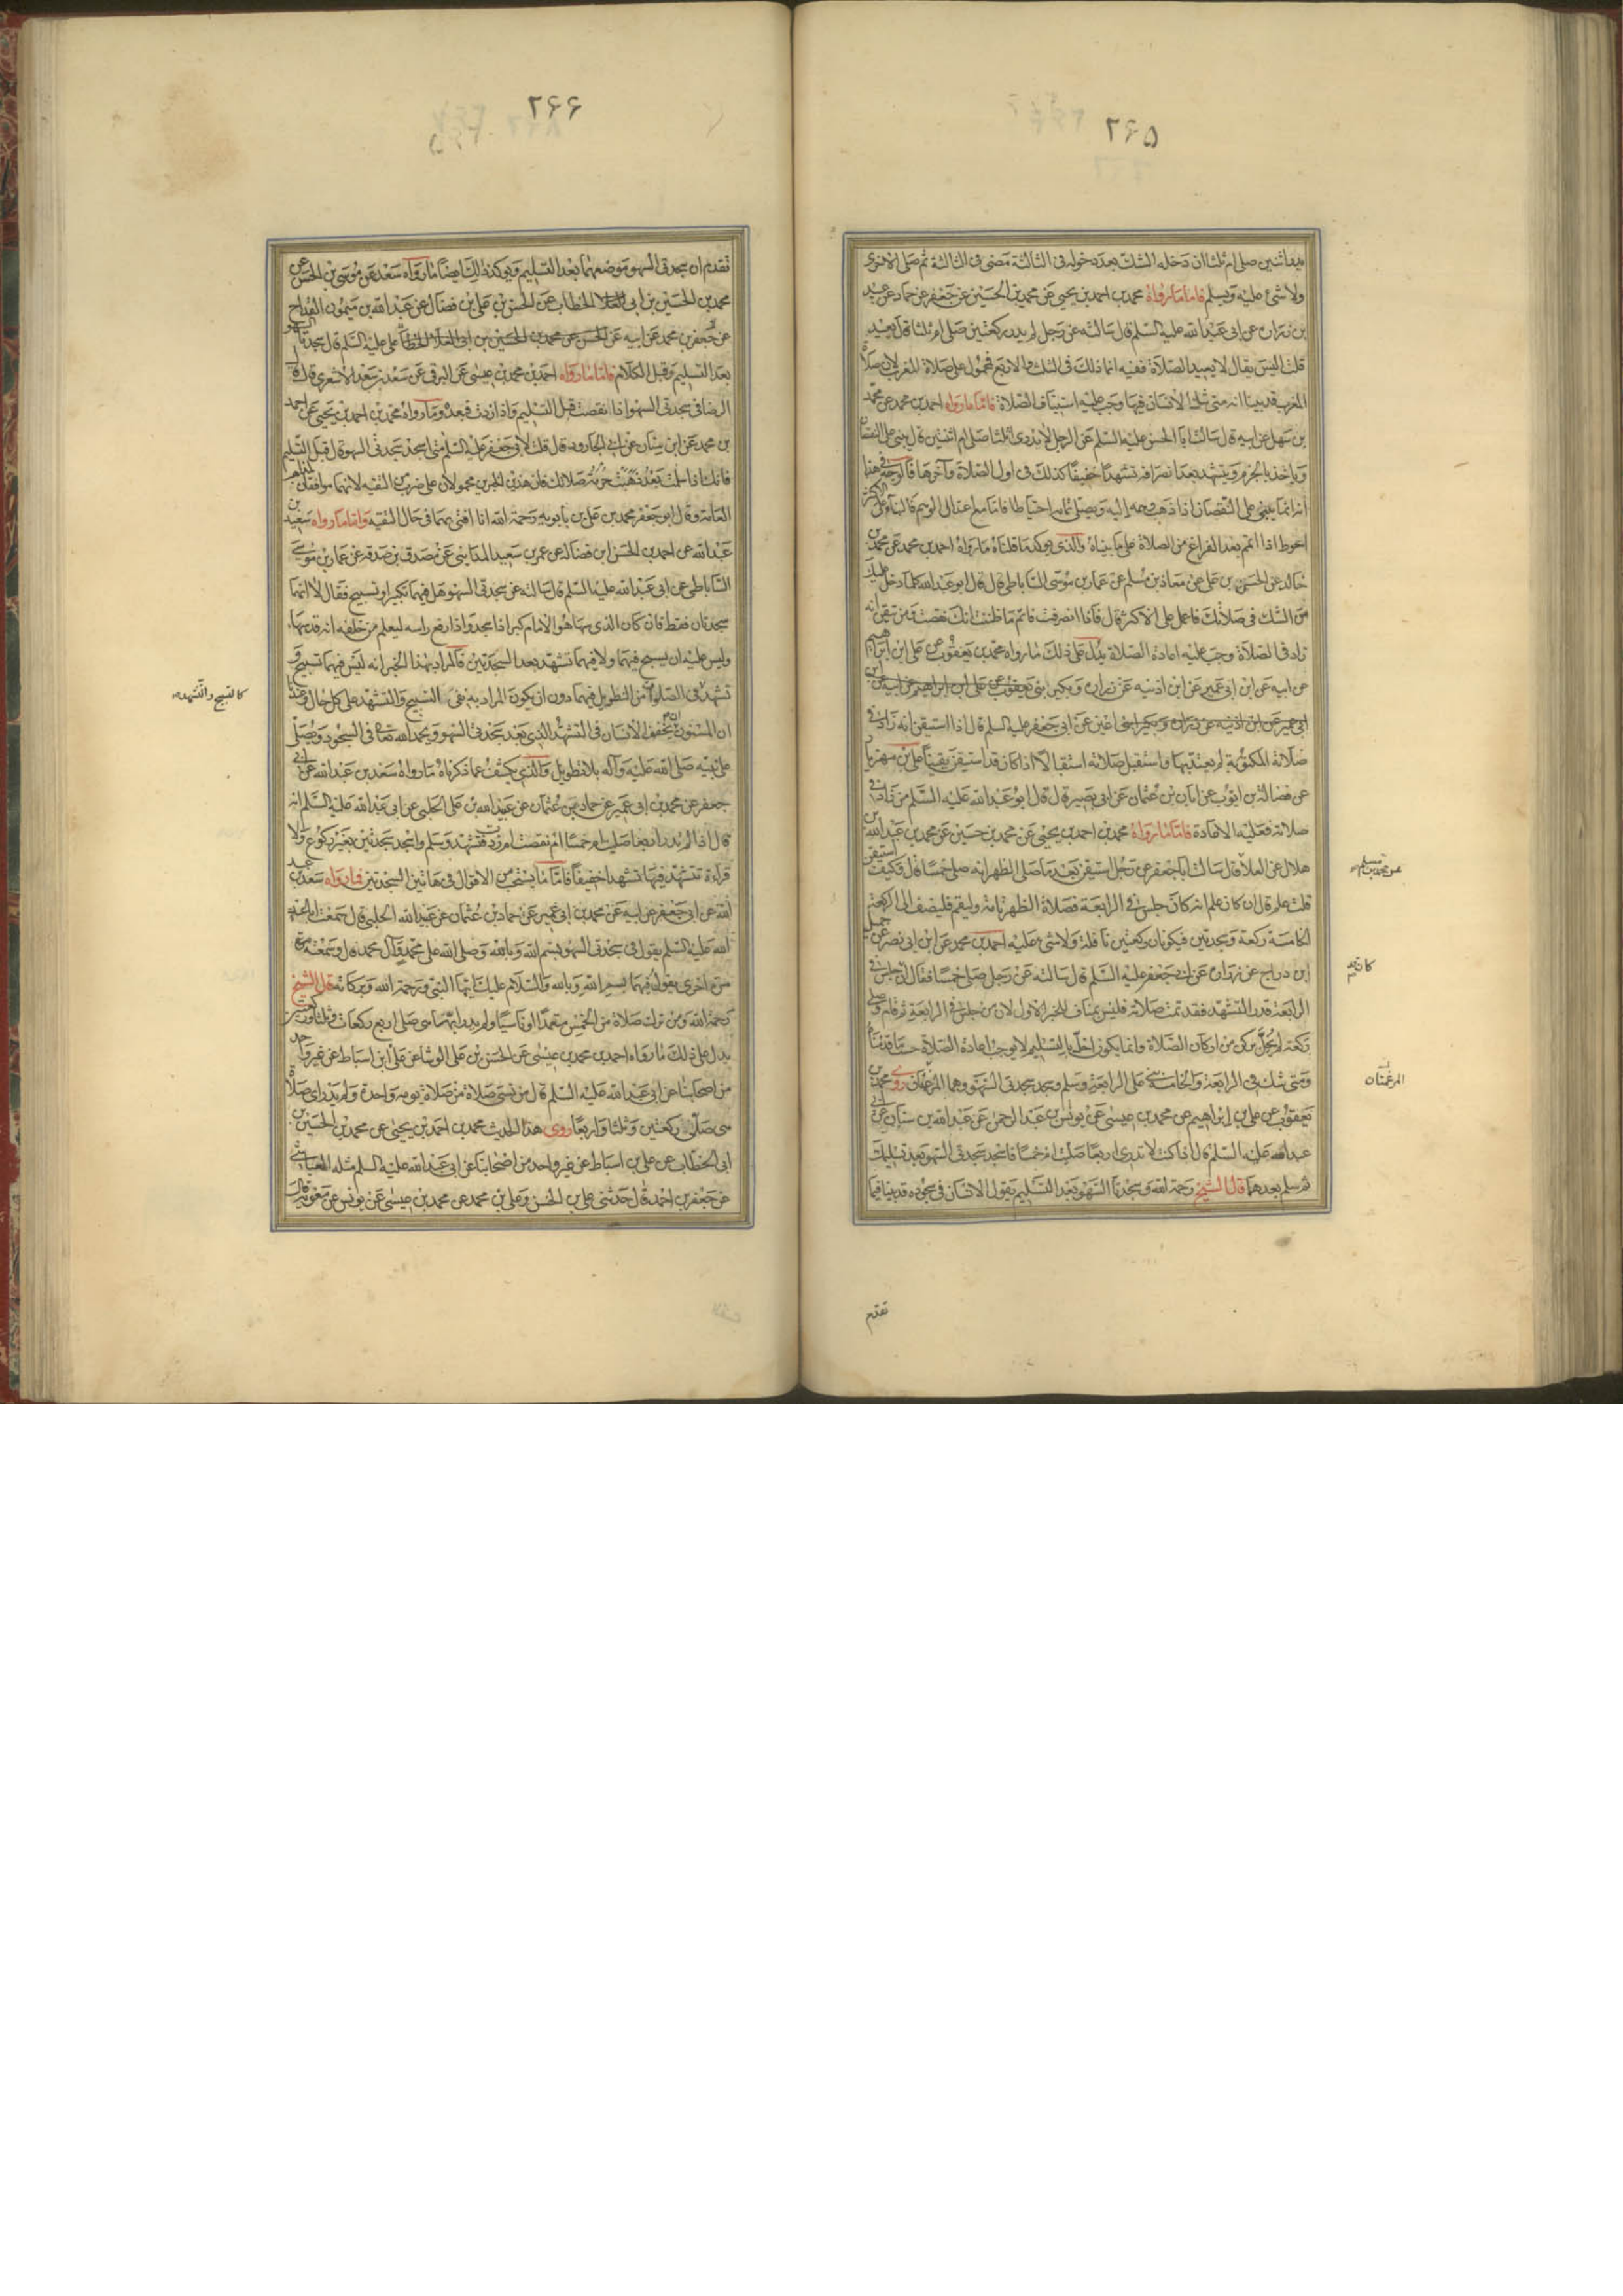 ٢٦٥
يدر اثنتين صلى ام ثلثا ان دخله الشك بعد دخوله فى الثالثة مضى فى الثالثة ثم صلى الاخرى
ولا شئ عليه ويسلم فاما ما رواه محمد بن احمد بن يحيى عن محمد بن الحسين عن جعفر عن حماد عن عبيد
بن زرارة عن ابى عبد الله عليه السلم قال سالته عن رجل لم يدر ركعتين صلى ام ثلثا قال يعيد
قلت اليس يقال لا يعيد الصلاة فقيه انما ذلك فى الثلث والاربع فمحمول على صلاة المغرب لان صلاة
المغرب قد بينا انه متى شك الانسان فيها وجب عليه استيناف الصلاة فاما ما رواه احمد بن محمد عن محمد
بن سهل عن ابيه قال سالت ابا الحسن عليه السلم عن الرجل لا يدرى اثلثا صلى ام اثنتين قال يبنى على النقصان
وياخذ بالجزم ويتشهد بعد انصرافه تشهدا خفيفا كذلك فى اول الصلاة وآخرها فالوجه فى هذا
انه انما يبنى على النقصان اذا ذهب وهمه اليه ويصلى تمامه احتياطا فاما مع اعتدال الوهم فالبناء على الاكثر
احوط اذا اتمم بعد الفراغ من الصلاة على ما بيناه والذى يوكد ما قلناه ما رواه احمد بن محمد عن محمد بن
خالد عن الحسن بن على عن معاذ بن مسلم عن عمار بن موسى الساباطى قال قال ابو عبد الله كلما دخل عليك
من الشك فى صلاتك فاعمل على الاكثر قال فاذا انصرفت فاتم ما ظننت انك نقصت ومن تيقن انه
زاد فى الصلاة وجب عليه اعادة الصلاة يدل على ذلك ما رواه محمد بن يعقوب عن على ابن ابراهيم
عن ابيه عن ابن ابى عمير عن ابن اذينه عن زرارة وبكير بنى يعقوب عن على ابن ابراهيم عن ابيه عن ابن
ابى عمير عن ابن اذينه عن زرارة وبكير ابنى اعين عن ابى جعفر عليه السلم قال اذا استيقن انه زاد فى
صلاته المكتوبة لم يعتد بها واستقبل صلاته استقبالا اذا كان قد استيقن يقينا على بن مهزيار
عن فضالة بن ايوب عن ابان بن عثمان عن ابى بصير قال قال ابو عبد الله عليه السلم من زاد فى
صلاته فعليه الاعادة فاما ما رواه محمد بن احمد بن يحيى عن محمد بن حسين عن محمد بن عبد الله بن
هلال عن العلا قال سالت ابا جعفر عن رجل استيقن بعد ما صلى الظهر انه صلى خمسا قال وكيف استيقن
قلت علم قال ان كان علم انه كان جلس فى الرابعة فصلاة الظهر تامة وليقم فليضف الى الركعة
الخامسة ركعة وسجدتين فيكونان ركعتين نافلة ولا شئ عليه احمد بن محمد عن ابن ابى نصر عن جميل
ابن دراج عن زرارة عن ابى جعفر عليه السلم قال سالته عن رجل صلى خمسا فقال ان جلس فى
الرابعة قدر التشهد فقد تمت صلاته فليس بمناف للخبر الاول لان من جلس فى الرابعة ثم قام وصلى
ركعة لم يخل بركن من اركان الصلاة وانما يكون اخل بالتسليم لا يوجب اعادة الصلاة حسب ما قدمناه
ومتى شك فى الرابعة والخامسة بنى على الرابعة وسلم وسجد سجدتى السهو وهما المرغمتان روى محمد بن
يعقوب عن على بن ابراهيم عن محمد بن عيسى عن يونس بن عبد الرحمن عن عبد الله بن سنان عن ابى
عبد الله عليه السلم قال اذا كنت لا تدرى اربعا صليت ام خمسا فاسجد سجدتى السهو بعد تسليمك
ثم سلم بعدهما قال الشيخ رحمة الله وسجدتا السهو بعد التسليم يقول الانسان فى سجوده قد بينا فيما
عن محمد بن مسلم
كان
المرغمتان
تقدم
٢٦٦
تقدم ان سجدتى السهو موضعهما بعد التسليم ويوكد ذلك ايضا ما رواه سعد عن موسى بن الحسن عن
محمد بن الحسين بن ابى العلا الخطاب عن الحسن بن على بن فضال عن عبد الله بن ميمون القداح
عن جعفر بن محمد عن ابيه عن الحسن عن محمد بن الحسين بن ابى العلا الخطاب على عليه السلم قال سجدتا السهو
بعد التسليم وقبل الكلام فاما ما رواه احمد بن محمد بن عيسى عن البرقى عن سعد بن سعد الاشعرى قال قال
الرضا فى سجدتى السهو اذا نقصت قبل التسليم واذا زدت فبعده وما رواه محمد بن احمد بن يحيى عن احمد
بن محمد عن ابن سنان عن ابى الجارود قال قلت لابى جعفر عليه السلم متى اسجد سجدتى السهو قال قبل التسليم
فانك اذا سلمت بعد ذهبت حرمة صلاتك فان هذين الخبرين محمولان على ضرب من التقيه لانهما موافقان لمذاهب
العامة وقال ابو جعفر محمد بن على بن بابويه رحمة الله انا افتى بهما فى حال التقيه واما ما رواه سعد بن
عبد الله عن احمد بن الحسن ابن فضال عن عمر بن سعيد المداينى عن مصدق بن صدقه عن عمار بن موسى
الساباطى عن ابى عبد الله عليه السلم قال سالته عن سجدتى السهو هل فيهما تكبير او تسبيح فقال لا انما
سجدتان فقط فان كان الذى سها هو الامام كبر اذا سجد واذا رفع راسه ليعلم من خلفه انه قد سها
وليس عليه ان يسبح فيهما ولا فيهما تشهد بعد السجدتين فالمراد بهذا الخبر انه ليس فيهما تسبيح و
تشهد فى الصلوة من التطويل فيهما دون ان يكون المراد به نفى التسبيح والتشهد على كل حال وعندنا
ان المسنون ان يخفف الانسان فى التشهد الذى بعد سجدتى السهو ويحمد الله تعالى فى السجود ويصلى
على نبيه صلى الله عليه وآله بلا تطويل والذى يكشف عما ذكرناه ما رواه سعد بن عبد الله عن ابى
جعفر عن محمد بن ابى عمير عن حماد بن عثمان عن عبيد الله بن على الحلبى عن ابى عبد الله عليه السلم انه
قال اذا لم تدر اربعا صليت ام خمسا ام نقصت ام زدت فتشهد وسلم واسجد سجدتين بغير ركوع ولا
قراءة تتشهد فيها تشهدا خفيفا فاما ما يستحب من الاقوال فى هاتين السجدتين فما رواه سعد بن عبد
الله عن ابى جعفر عن ابيه عن محمد بن ابى عمير عن حماد بن عثمان عن عبيد الله الحلبى قال سمعت ابا عبد
الله عليه السلم يقول فى سجدتى السهو بسم الله وبالله وصلى الله على محمد وآل محمد قال وسمعته مرة
مرة اخرى يقول فيهما بسم الله وبالله والسلام عليك ايها النبى ورحمة الله وبركاته قال الشيخ
رحمة الله ومن ترك صلاة من الخمس متعمدا او ناسيا ولم يدر ايهما هى صلى اربع ركعات وثلثا وركعتين
يدل على ذلك ما رواه احمد بن محمد بن عيسى عن الحسن بن على الوشا عن على ابن اسباط عن غير واحد
من اصحابنا عن ابى عبد الله عليه السلم قال من نسى صلاة من صلاة يومه واحدة ولم يدر اى صلاة
هى صلى ركعتين وثلثا واربعا روى هذا الحديث محمد بن احمد بن يحيى عن محمد بن الحسين بن
ابى الخطاب عن على بن اسباط عن غير واحد من اصحابنا عن ابى عبد الله عليه السلم مثله العياشى
عن جعفر بن احمد قال حدثنى على بن الحسن وعلى بن محمد عن محمد بن عيسى عن يونس عن معوية قال
كالتسبيح والتشهد